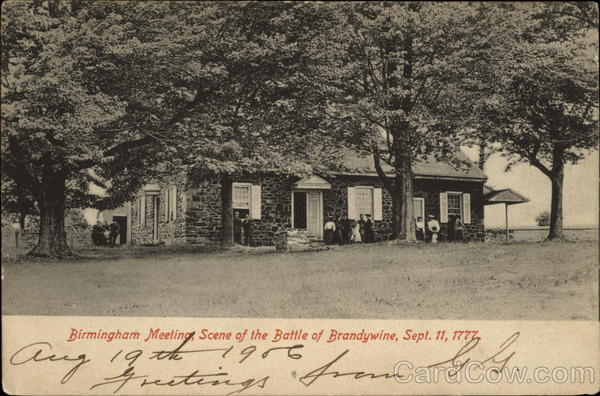 Birmingham Meeting, Scene of the Battle of Brandywine, Sept. 11, 1777.
Aug 19th 1906
Greetings from G G
CardCow.com